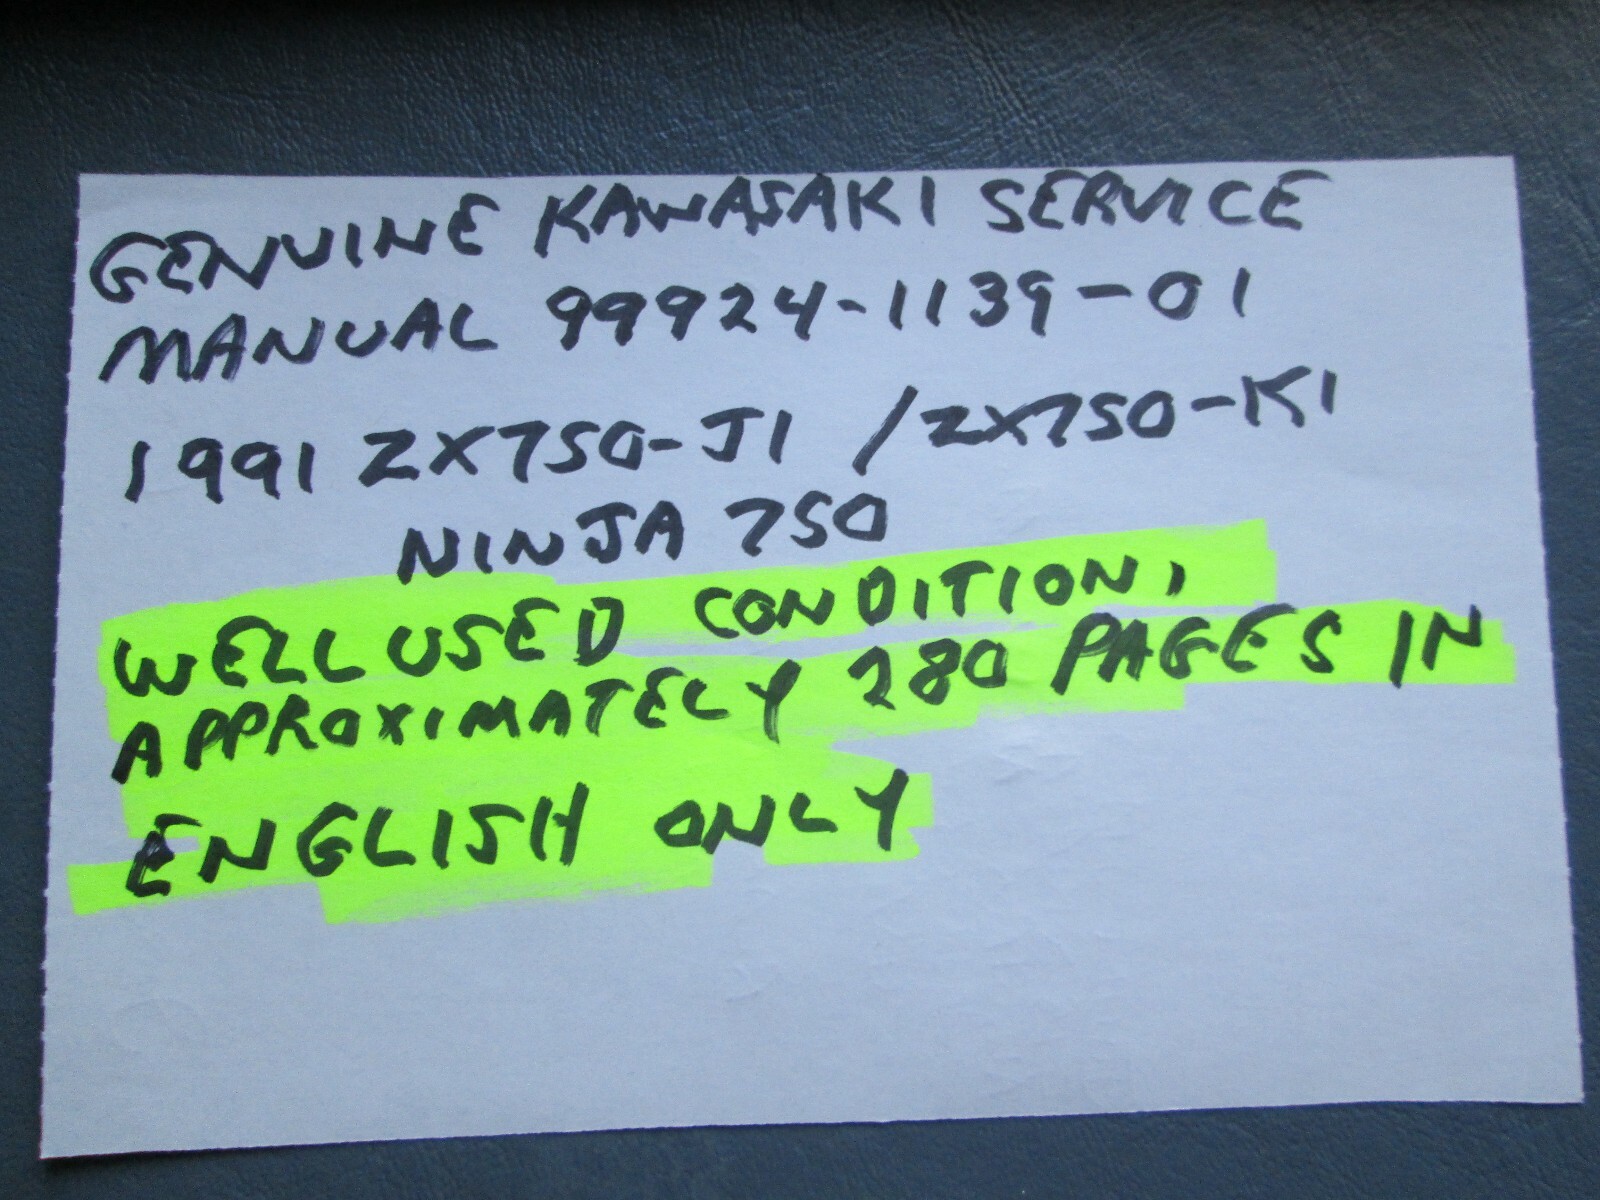 GENUINE KAWASAKI SERVICE
MANUAL 99924-1139-01
1991 ZX750-J1 / ZX750-K1
NINJA 750
WELL USED CONDITION,
APPROXIMATELY 280 PAGES IN
ENGLISH ONLY